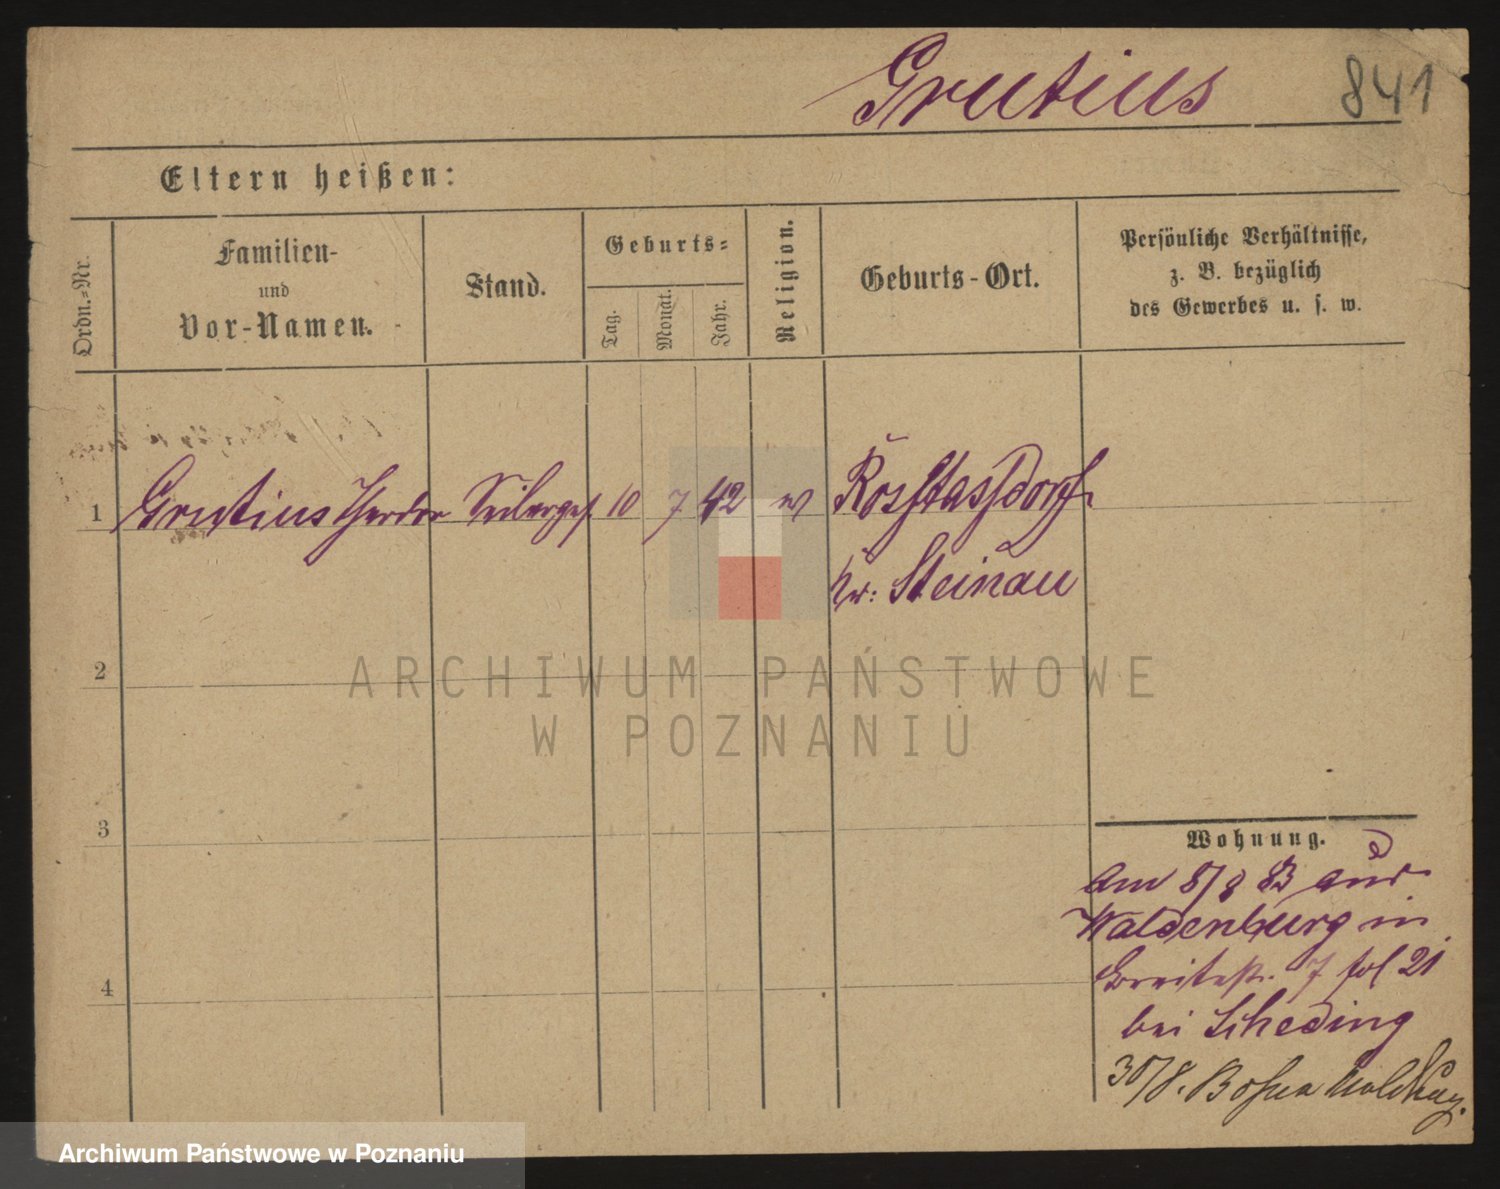 Grutius 841
Eltern heißen:
Ordn.=Nr.
Familien-
und
Vor-Namen.
Stand.
Geburts=
Tag.
Monat.
Jahr.
Religion.
Geburts-Ort.
Persönliche Verhältnisse,
z. B. bezüglich
des Gewerbes u. s. w.
1 Grutius Theodor Seilerges. 10 7 42
Kr: Steinau
2
3
4
Wohnung.
Am 8/8 83 aus
Waldenburg in
Breitestr. 7 fol 21
bei Scheding
30/8.
ARCHIWUM PAŃSTWOWE
W POZNANIU
Archiwum Państwowe w Poznaniu